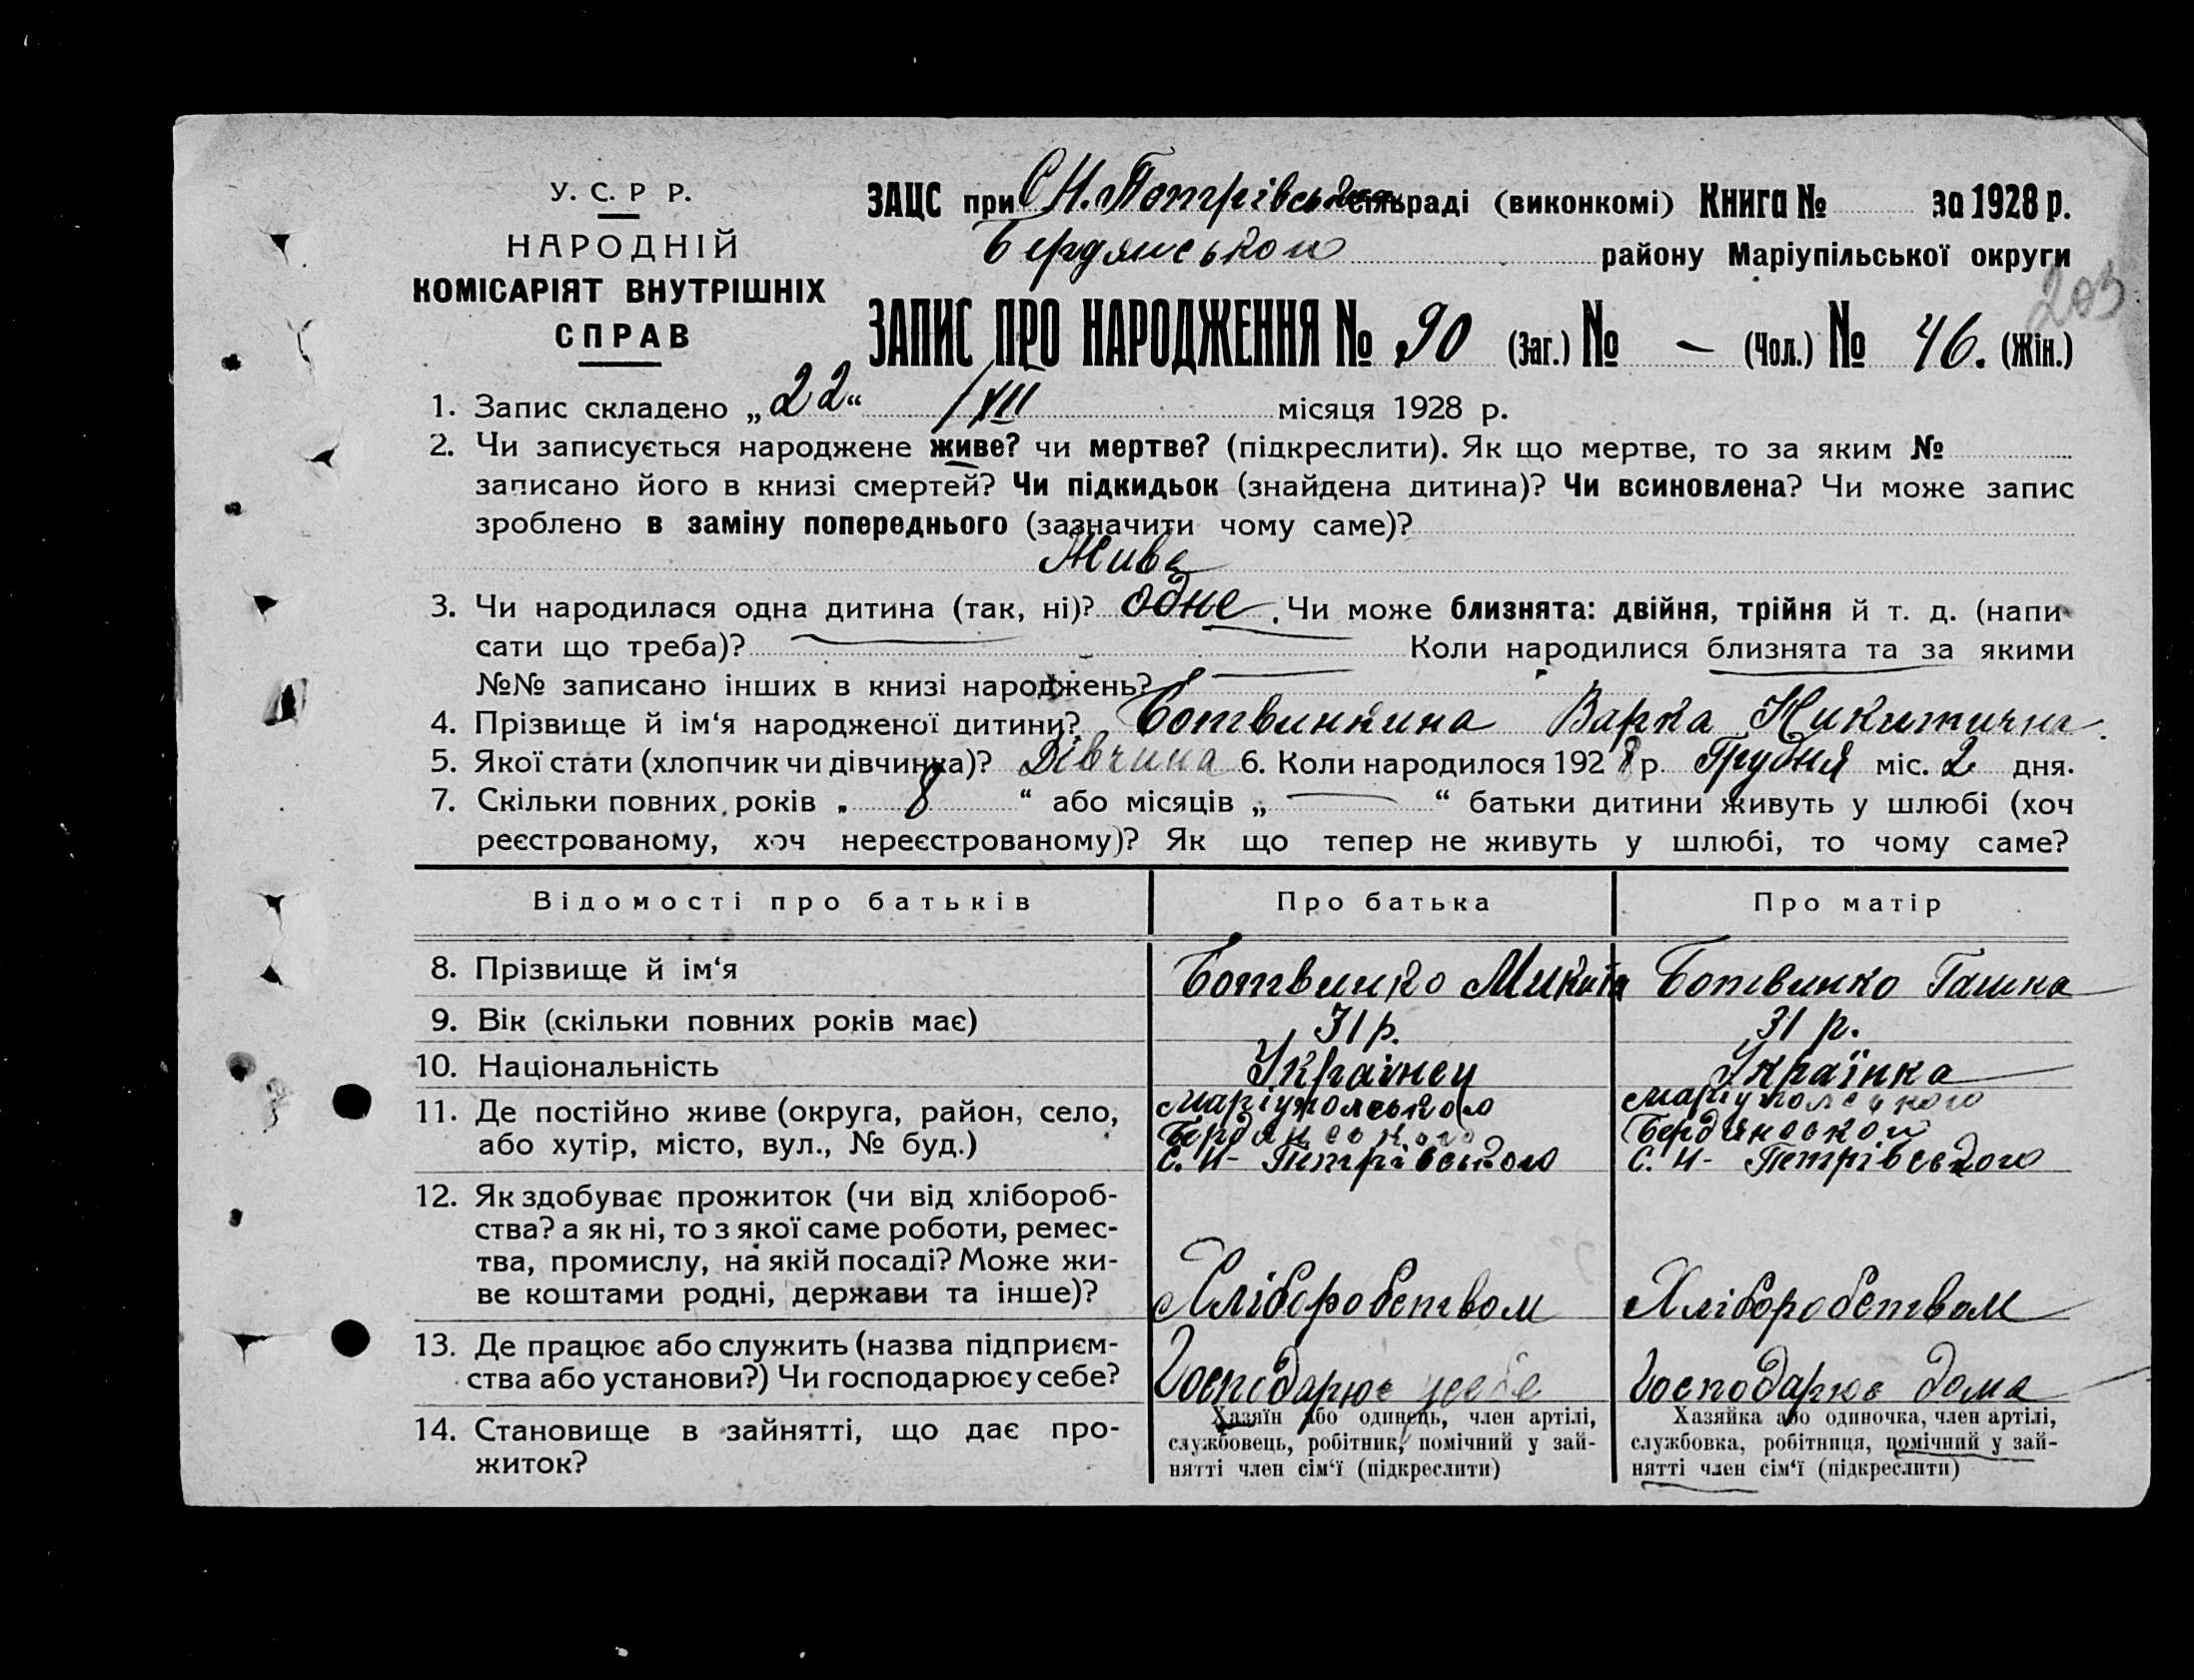 У. С. Р Р.
НАРОДНІЙ
КОМІСАРІЯТ ВНУТРІШНІХ
СПРАВ
ЗАЦС при С Н. Петрівській сільраді (виконкомі) Книга № за 1928 р.
Бердянського району Маріупільської округи
203
ЗАПИС ПРО НАРОДЖЕННЯ № 90 (Заг.) № – (Чол.) № 46. (Жін.)
1. Запис складено „22“ /XII місяця 1928 р.
2. Чи записується народжене живе? чи мертве? (підкреслити). Як що мертве, то за яким №
записано його в книзі смертей? Чи підкидьок (знайдена дитина)? Чи всиновлена? Чи може запис
зроблено в заміну попереднього (зазначити чому саме)?
Живе
3. Чи народилася одна дитина (так, ні)? одне. Чи може близнята: двійня, трійня й т. д. (напи-
сати що треба)? Коли народилися близнята та за якими
№№ записано інших в книзі народжень?
4. Прізвище й ім‘я народженої дитини? Ботвинкина Варка Никитична.
5. Якої стати (хлопчик чи дівчинка)? Дівчина 6. Коли народилося 1928 р. Грудня міс. 2 дня.
7. Скільки повних років „ 8 “ або місяців „ — “ батьки дитини живуть у шлюбі (хоч
реєстрованому, хоч нереєстрованому)? Як що тепер не живуть у шлюбі, то чому саме?
Відомості про батьків Про батька Про матір
8. Прізвище й ім‘я Ботвинко Микита Ботвинко Гашка
9. Вік (скільки повних років має) 31 р. 31 р.
10. Національність Українец Українка
11. Де постійно живе (округа, район, село, Маріупольського Маріупольського
або хутір, місто, вул., № буд.) Бердянського Бердянского
С. Н- Петрівського С. Н- Петрівського
12. Як здобуває прожиток (чи від хлібороб-
ства? а як ні, то з якої саме роботи, ремес-
тва, промислу, на якій посаді? Може жи-
ве коштами родні, держави та інше)? Хліборобством Хліборобством
13. Де працює або служить (назва підприєм-
ства або установи?) Чи господарює у себе? Господарює у себе Господарює дома
14. Становище в зайнятті, що дає про-
житок?
Хазяїн або одинець, член артілі,
службовець, робітник, помічний у зай-
нятті член сім‘ї (підкреслити)
Хазяйка або одиночка, член артілі,
службовка, робітниця, помічний у зай-
нятті член сім‘ї (підкреслити)